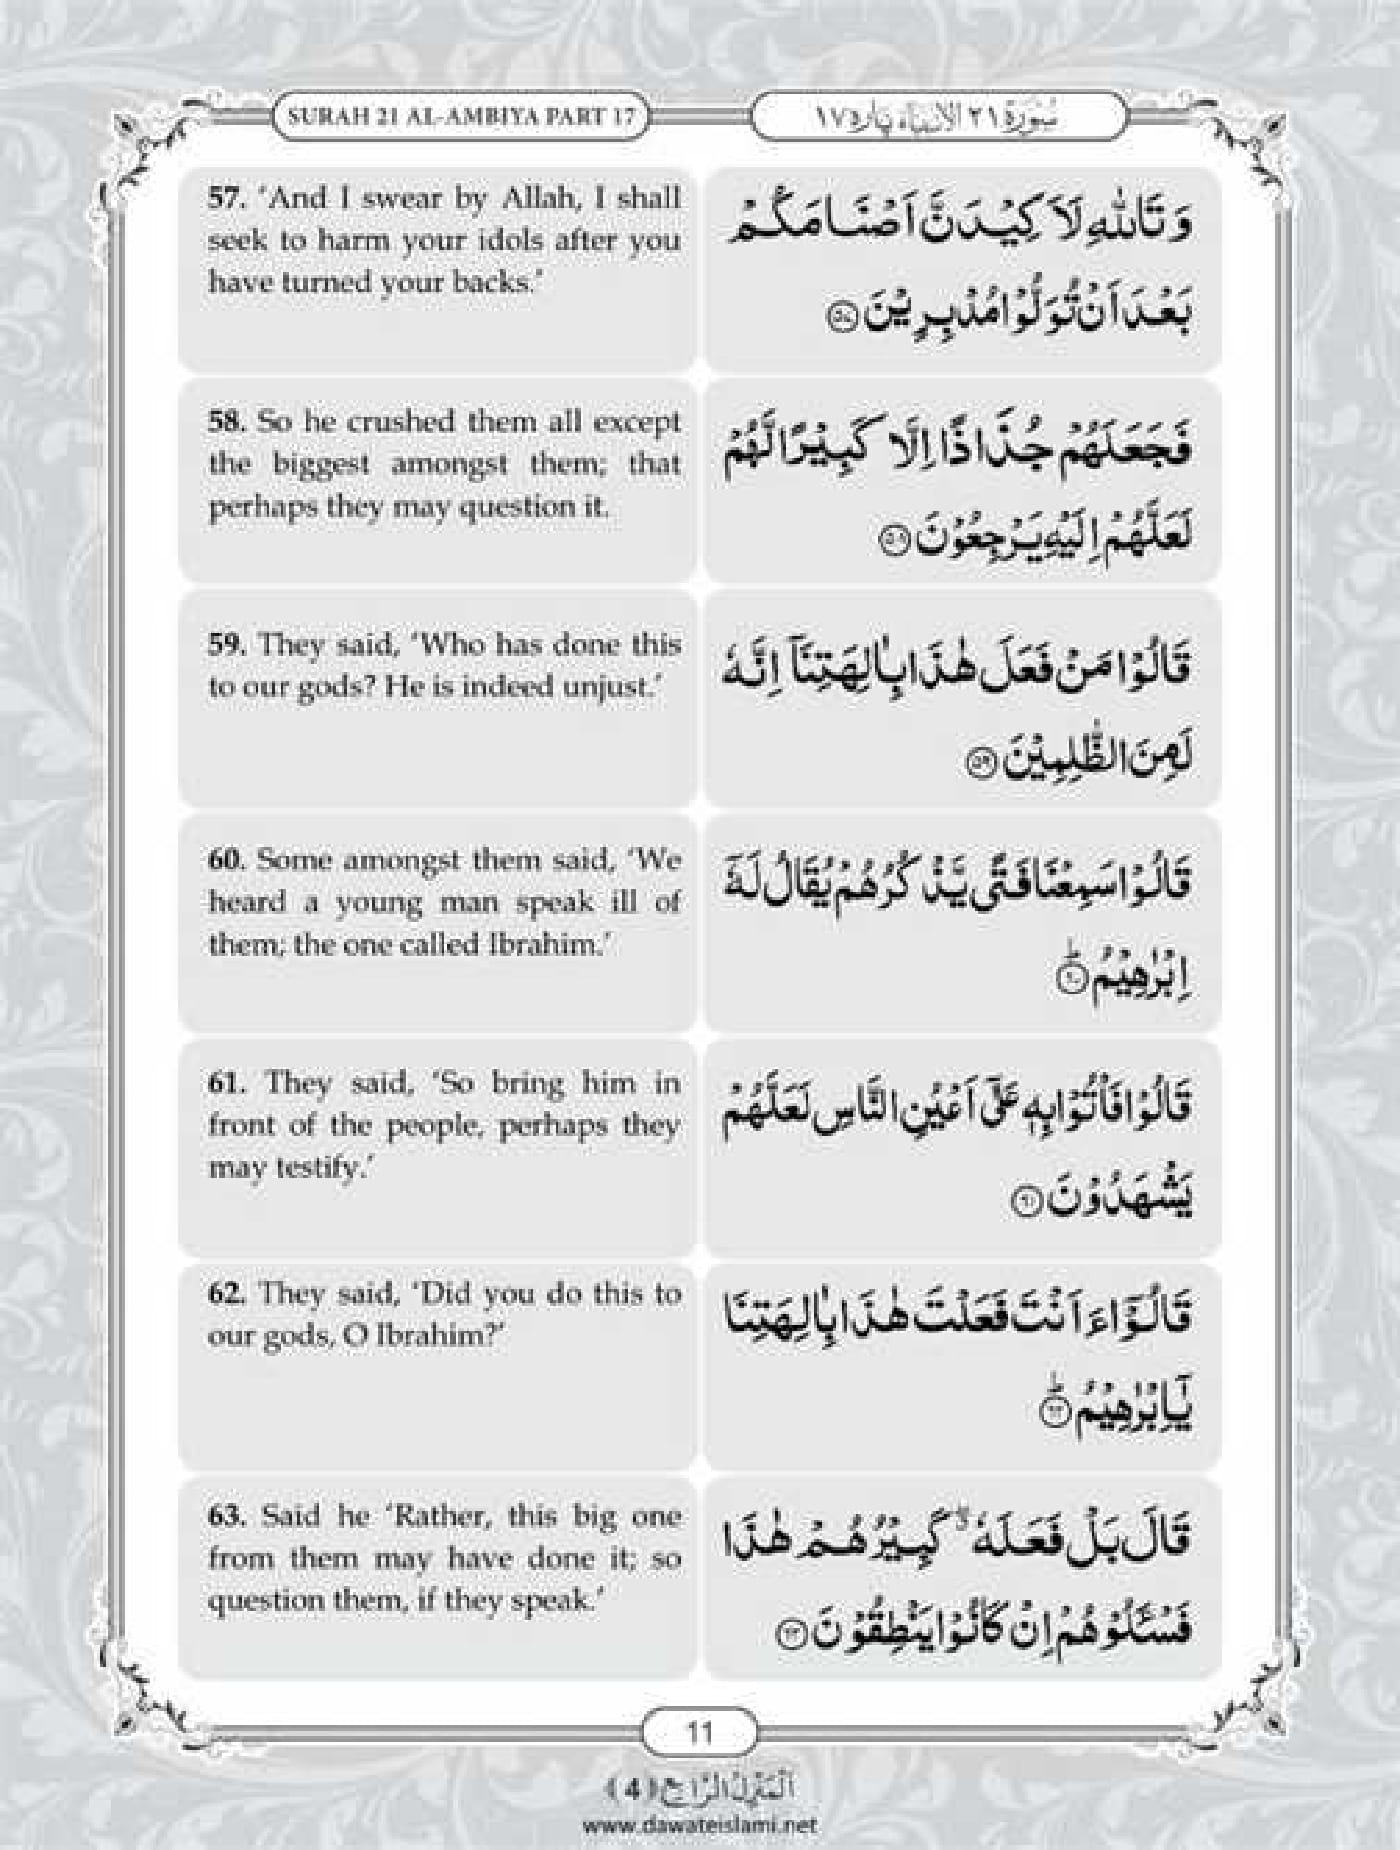 SURAH 21 AL-AMBIYA PART 17
سُوْرَة ٢١ الاَنبِيَاء پاره ١٧
57. ‘And I swear by Allah, I shall
seek to harm your idols after you
have turned your backs.’
وَتَاللّٰهِ لَاَكِيْدَنَّ اَصْنَامَكُمْ
بَعْدَ اَنْ تُوَلُّوْا مُدْبِرِيْنَ ﴿۵۷﴾
58. So he crushed them all except
the biggest amongst them; that
perhaps they may question it.
فَجَعَلَهُمْ جُذٰذًا اِلَّا كَبِيْرًا لَّهُمْ
لَعَلَّهُمْ اِلَيْهِ يَرْجِعُوْنَ ﴿۵۸﴾
59. They said, ‘Who has done this
to our gods? He is indeed unjust.’
قَالُوْا مَنْ فَعَلَ هٰذَا بِاٰلِهَتِنَاۤ اِنَّهٗ
لَمِنَ الظّٰلِمِيْنَ ﴿۵۹﴾
60. Some amongst them said, ‘We
heard a young man speak ill of
them; the one called Ibrahim.’
قَالُوْا سَمِعْنَا فَتًى يَّذْكُرُهُمْ يُقَالُ لَهٗۤ
اِبْرٰهِيْمُ ﴿۶۰﴾ؕ
61. They said, ‘So bring him in
front of the people, perhaps they
may testify.’
قَالُوْا فَاْتُوْا بِهٖ عَلٰۤى اَعْيُنِ النَّاسِ لَعَلَّهُمْ
يَشْهَدُوْنَ ﴿۶۱﴾
62. They said, ‘Did you do this to
our gods, O Ibrahim?’
قَالُوْۤا ءَاَنْتَ فَعَلْتَ هٰذَا بِاٰلِهَتِنَا
يٰۤاِبْرٰهِيْمُ ﴿۶۲﴾ؕ
63. Said he ‘Rather, this big one
from them may have done it; so
question them, if they speak.’
قَالَ بَلْ فَعَلَهٗ ۖۗ كَبِيْرُهُمْ هٰذَا
فَسْـَٔلُوْهُمْ اِنْ كَانُوْا يَنْطِقُوْنَ ﴿۶۳﴾
11
اَلْمَنْزِلُ الرَّابِع (4)
www.dawateislami.net